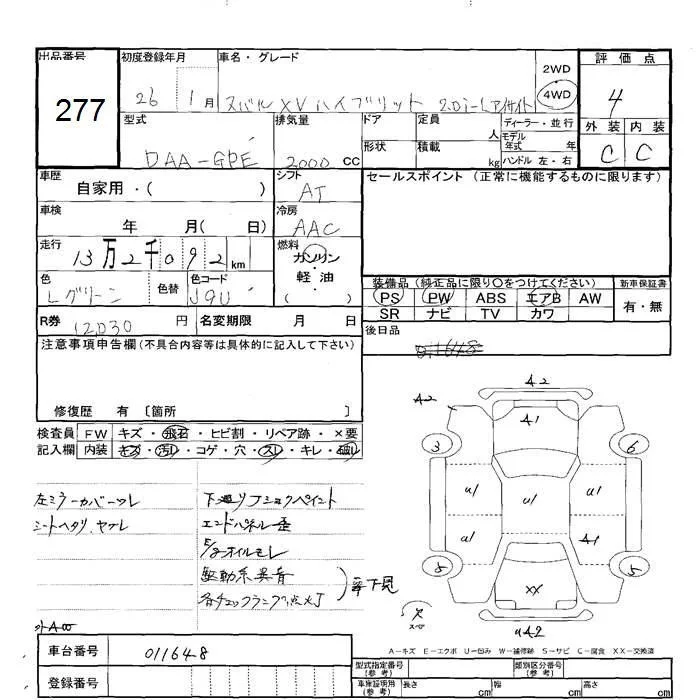 出品番号 初度登録年月 車名・グレード 評価点
277
26 1月 スバル XV ハイブリット 2.0i-Lアイサイト
2WD
4WD
4
型式 排気量 ドア 定員 人 ディーラー・並行 外装 内装
モデル年式 年
DAA-GPE 2000 CC 形状 積載 kg ハンドル 左・右 C C
車歴 シフト セールスポイント (正常に機能するものに限ります)
自家用・( ) AT
車検 冷房
年 月( 日) AAC
走行 燃料
13万2千092 km ガソリン
軽油
( )
色 色替 色コード
Lグリーン J9U
装備品 (純正品に限り○をつけてください) 新車保証書
PS PW ABS エアB AW 有・無
SR ナビ TV カワ
R券 12030 円 名変期限 月 日
後日品
011648
注意事項申告欄(不具合内容等は具体的に記入して下さい)
修復歴 有 〔箇所 〕
検査員 FW キズ・飛石・ヒビ割・リペア跡・×要
記入欄 内装 キズ・汚れ・コゲ・穴・スレ・キレ・破れ
左ミラーカバーワレ
シートヘタリ、ヤブレ
下廻リフショックペイント
エンドパネル歪
E/gオイルモレ
駆動系異音
各チェックランプ点灯
要下見
外A00
A2
A2
A1
3 6
U1 U1 U1
U1 A1
5 5
XX
スペア
UA2
A-キズ E-エクボ U-凹み W-補修跡 S-サビ C-腐食 XX-交換済
車台番号 011648
登録番号
型式指定番号(参考) 類別区分番号(参考)
車庫証明用(参考) 長さ cm 幅 cm 高さ cm